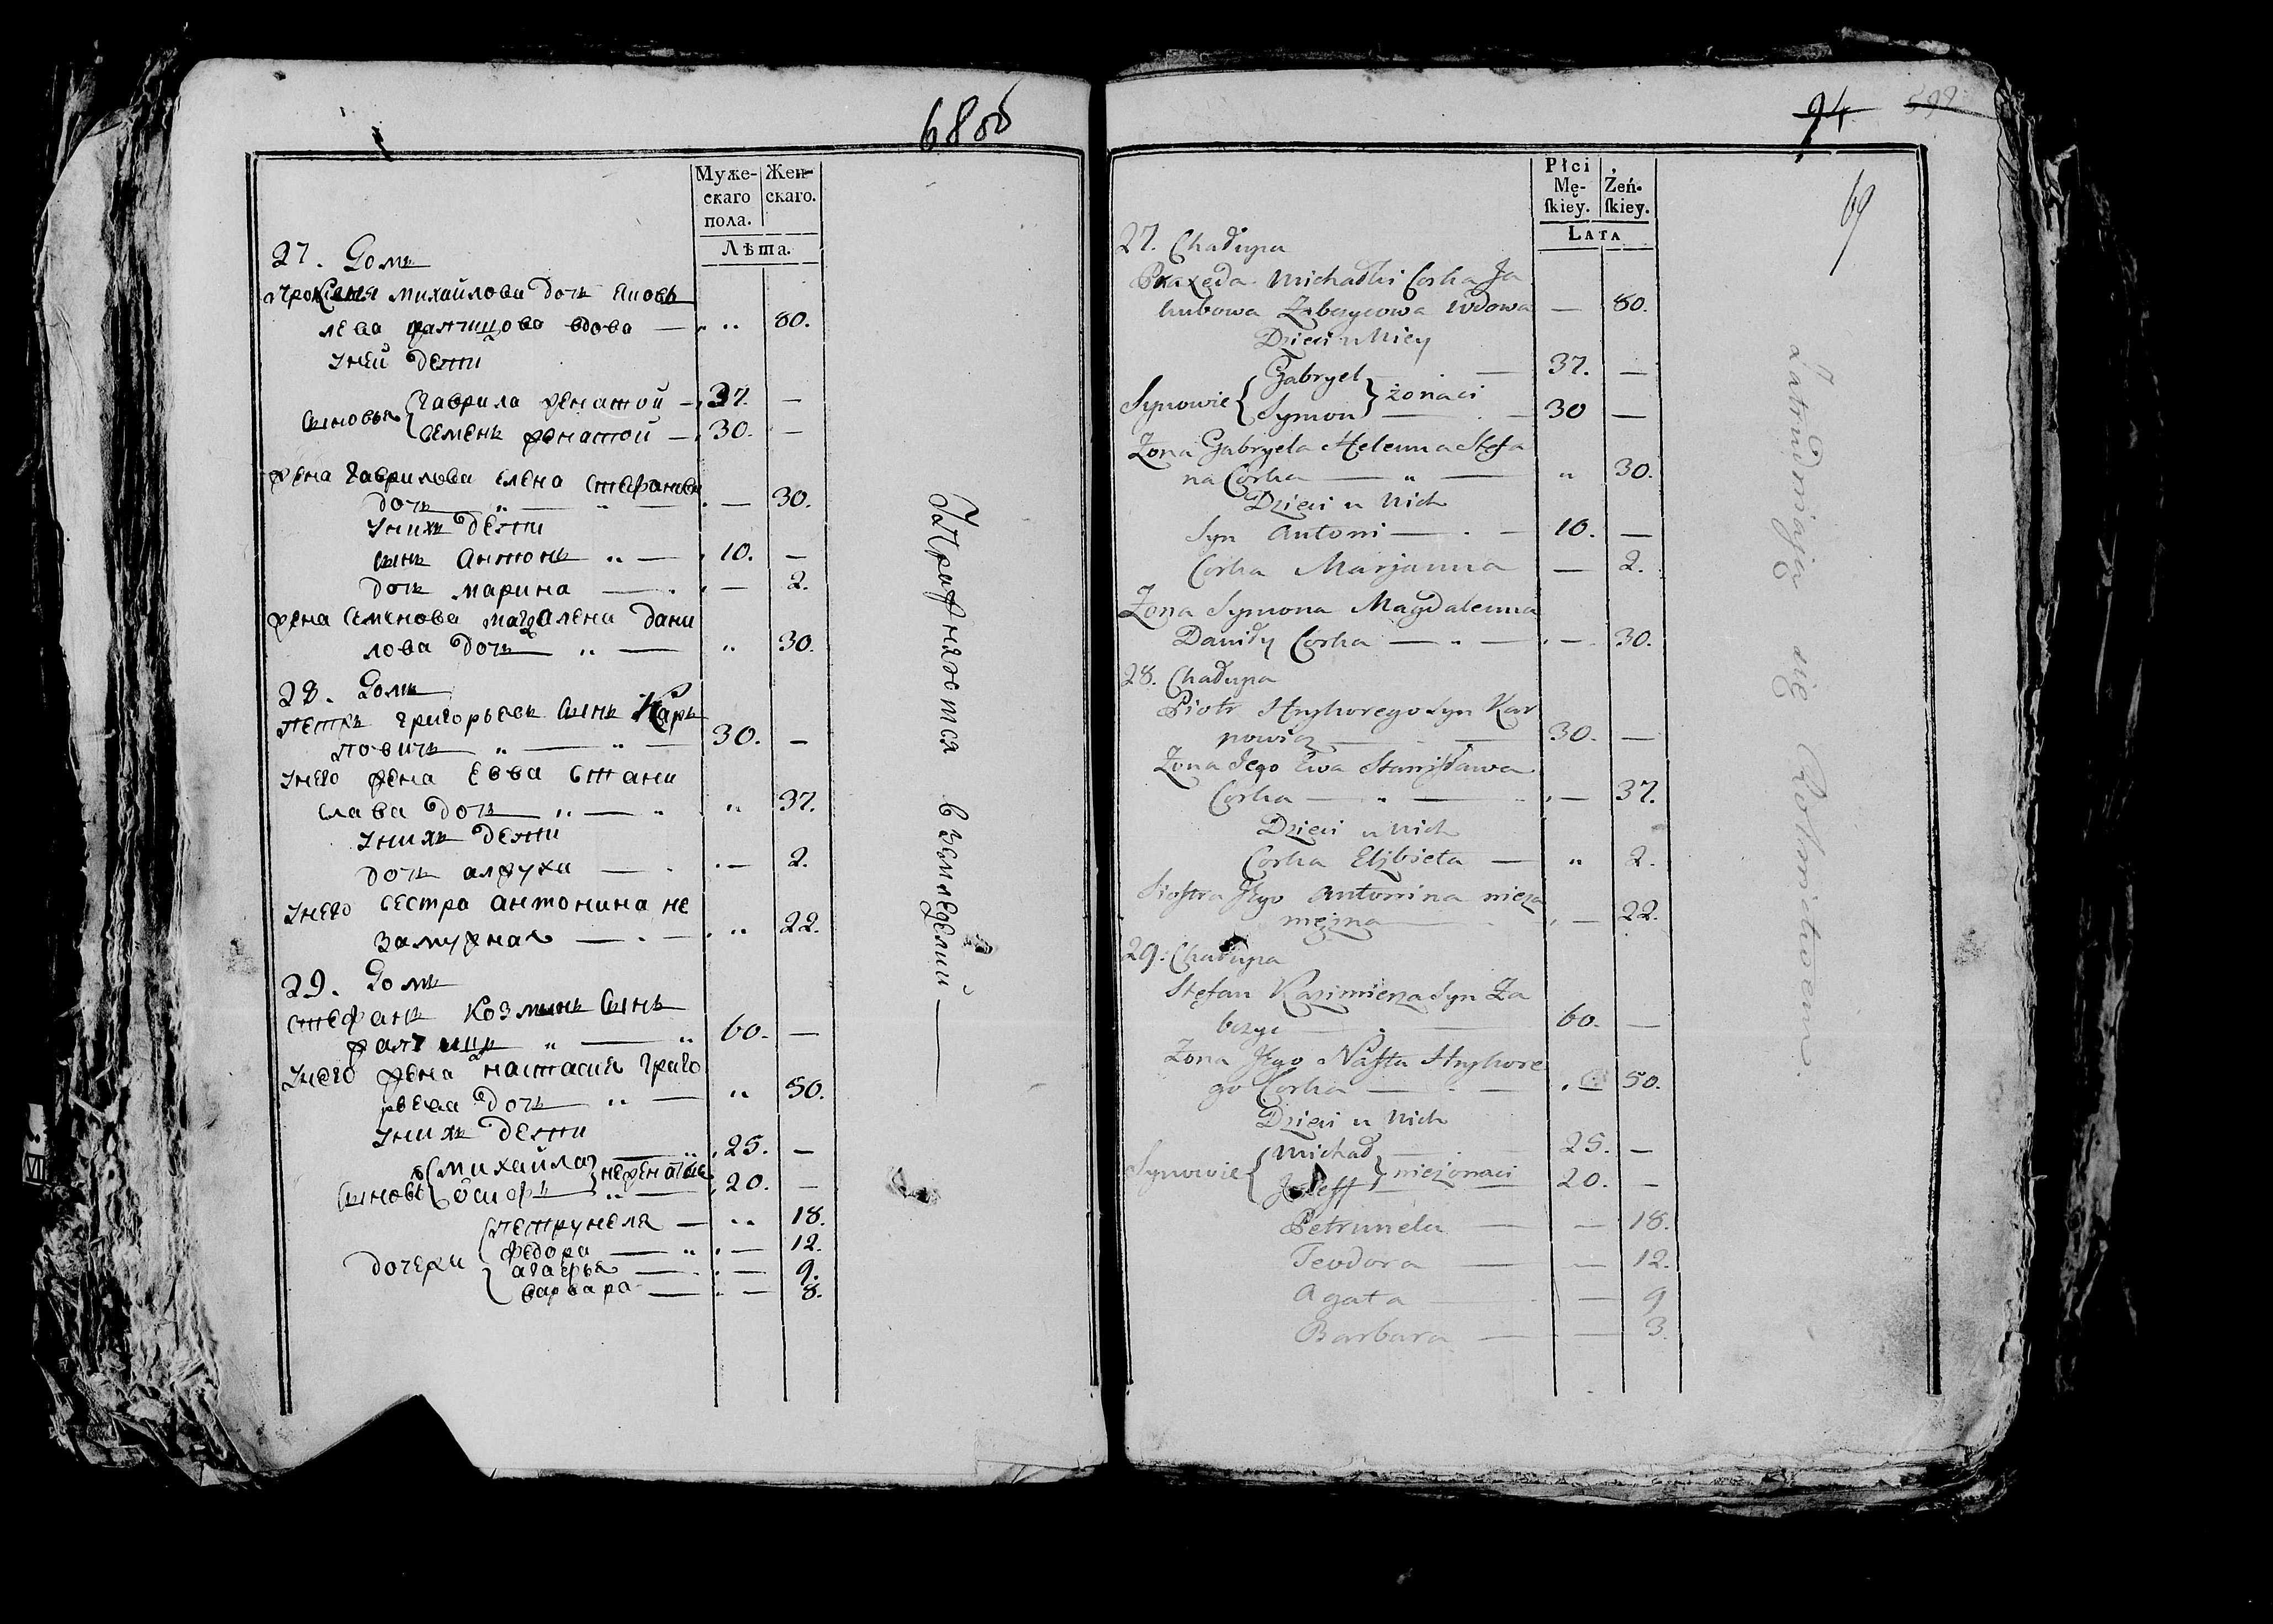 68об
Муже-
скаго
пола.
Жен-
скаго.
Лѣта.
27. Домъ
Михайлова дочь Яковъ
лева вдова — „ 80.
Уней дети
Сыновья Гаврила женатой — 37. —
Семенъ женатой — 30. —
жена Гаврилова Елена Стефанова
дочь — „ — 30.
Унихъ дети
сынъ Антонъ „ — 10. —
дочь Марина — — 2.
жена Семенова Магдалена Дани
лова дочь „ — „ 30.
28. Домъ
Петръ Григорьевъ сынъ Карь
повичъ „ — „ — 30. —
Унего жена Евва Стани
слава дочь „ — „ 37.
Унихъ дети
дочь — — 2.
Унего сестра Антонина не
замужная — „ 22.
29. Домъ
Стефанъ Козминъ сынъ
„ — „ 60. —
Унего жена Настасия Григо
рьева дочь „ — „ 50.
Унихъ дети
Сыновья Михайла — „ 25. —
Осифъ неженатые „ — 20. —
дочери Петрунеля — „ 18.
Федора — „ — 12.
Агафья — — 9.
Варвара — — 8.
Упражняются в земледелии —
94
592
69
Płci
Mę-
skiey.
Żeń-
skiey.
LATA
27. Chałupa
Praxeda Michałki Corka Ja
kubowa Zabrzycowa Wdowa — 80.
Dzieci u Niey
Synowie Gabryel — 37. —
Symon żonaci — 30 —
Zona Gabryela Helenna Stefa
na Corka — „ — „ 30.
Dzieci u Nich
Syn Antoni — 10. —
Corka Marjanna — 2.
Zona Symona Magdalenna
Daniły Corka — „ — — 30.
28. Chałupa
Piotr Hryhorego Syn Kar
powicz — 30. —
Zona Jego Ewa Stanisława
Corka — „ — — 37.
Dzieci u Nich
Corka Elżbieta — „ 2.
Siostra Jego Antonina nieza
mężna — — 22.
29. Chałupa
Stefan Kazimierza Syn Za
brzyc — 60. —
Zona Jego Nasta Hryhore
go Corka — — 50.
Dzieci u Nich
Synowie Michał — 25. —
Jozeff nieżonaci — 20. —
Petrunela — — 18.
Teodora — — 12.
Agata — — 9
Barbara — — 3.
Zatrudniają się Rolnictwem.